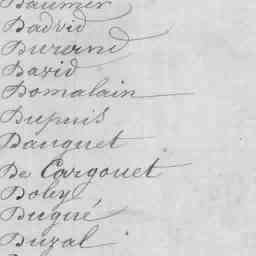 Daumer
Dadvid
Durand
David
Domalain
Dupuis
Dauguet
De Cargouet
Doley
Dugué
Duzal